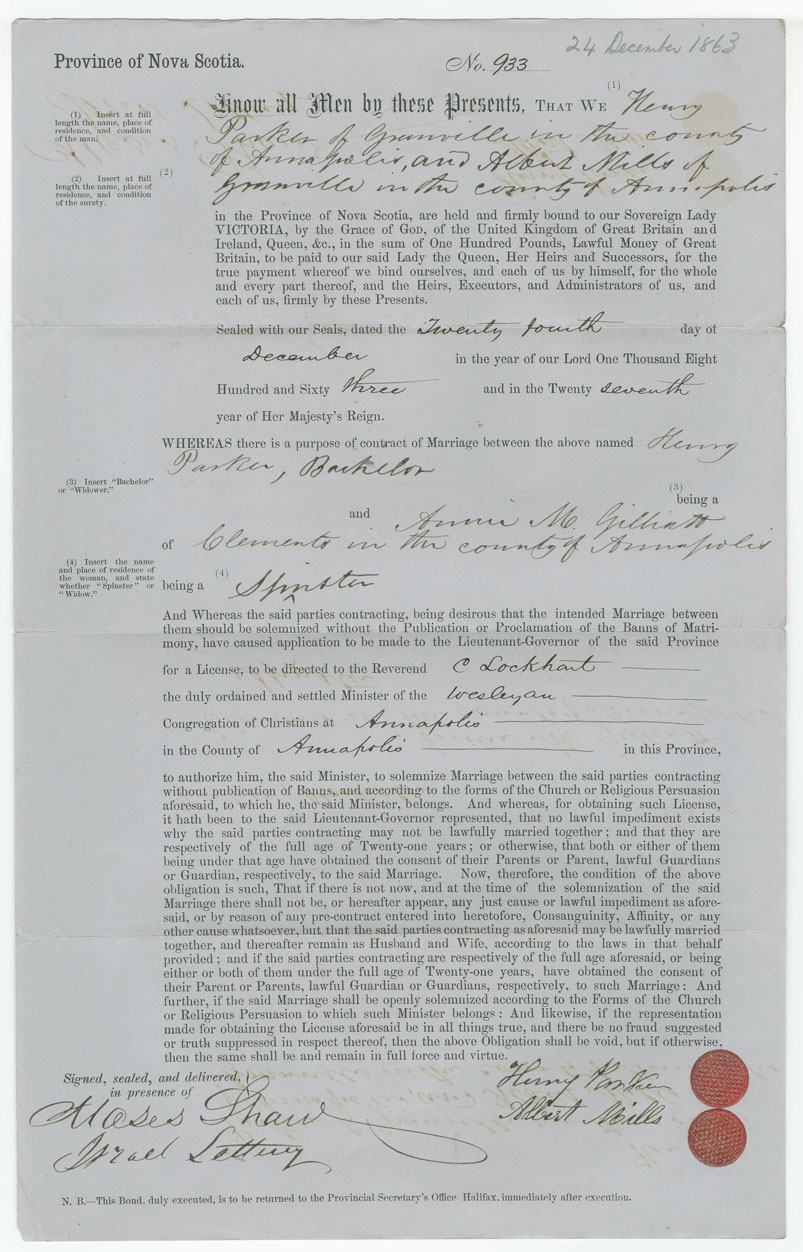 24 December 1863
Province of Nova Scotia.
No. 933
(1) Insert at full
length the name, place of
residence, and condition
of the man.
(1)
Know all Men by these Presents, THAT WE Henry
Parker of Granville in the county
(2) Insert at full
length the name, place of
residence, and condition
of the surety.
(2)
of Annapolis, and Albert Mills of
Granville in the county of Annapolis
in the Province of Nova Scotia, are held and firmly bound to our Sovereign Lady
VICTORIA, by the Grace of GOD, of the United Kingdom of Great Britain and
Ireland, Queen, &c., in the sum of One Hundred Pounds, Lawful Money of Great
Britain, to be paid to our said Lady the Queen, Her Heirs and Successors, for the
true payment whereof we bind ourselves, and each of us by himself, for the whole
and every part thereof, and the Heirs, Executors, and Administrators of us, and
each of us, firmly by these Presents.
Sealed with our Seals, dated the Twenty fourth day of
December in the year of our Lord One Thousand Eight
Hundred and Sixty three and in the Twenty seventh
year of Her Majesty's Reign.
WHEREAS there is a purpose of contract of Marriage between the above named Henry
Parker, Bachelor
(3) Insert "Bachelor"
or "Widower."
(3)
being a
and Annie M. Gilliatt
of Clements in the county of Annapolis
(4) Insert the name
and place of residence of
the woman, and state
whether "Spinster" or
"Widow."
(4)
being a Spinster
And Whereas the said parties contracting, being desirous that the intended Marriage between
them should be solemnized without the Publication or Proclamation of the Banns of Matri-
mony, have caused application to be made to the Lieutenant-Governor of the said Province
for a License, to be directed to the Reverend C Lockhart
the duly ordained and settled Minister of the Wesleyan
Congregation of Christians at Annapolis
in the County of Annapolis in this Province,
to authorize him, the said Minister, to solemnize Marriage between the said parties contracting
without publication of Banns, and according to the forms of the Church or Religious Persuasion
aforesaid, to which he, the said Minister, belongs. And whereas, for obtaining such License,
it hath been to the said Lieutenant-Governor represented, that no lawful impediment exists
why the said parties contracting may not be lawfully married together; and that they are
respectively of the full age of Twenty-one years; or otherwise, that both or either of them
being under that age have obtained the consent of their Parents or Parent, lawful Guardians
or Guardian, respectively, to the said Marriage. Now, therefore, the condition of the above
obligation is such, That if there is not now, and at the time of the solemnization of the said
Marriage there shall not be, or hereafter appear, any just cause or lawful impediment as afore-
said, or by reason of any pre-contract entered into heretofore, Consanguinity, Affinity, or any
other cause whatsoever, but that the said parties contracting as aforesaid may be lawfully married
together, and thereafter remain as Husband and Wife, according to the laws in that behalf
provided; and if the said parties contracting are respectively of the full age aforesaid, or being
either or both of them under the full age of Twenty-one years, have obtained the consent of
their Parent or Parents, lawful Guardian or Guardians, respectively, to such Marriage: And
further, if the said Marriage shall be openly solemnized according to the Forms of the Church
or Religious Persuasion to which such Minister belongs: And likewise, if the representation
made for obtaining the License aforesaid be in all things true, and there be no fraud suggested
or truth suppressed in respect thereof, then the above Obligation shall be void, but if otherwise,
then the same shall be and remain in full force and virtue.
Signed, sealed, and delivered,
in presence of
Henry Parker
Albert Mills
Moses Shaw
Israel Letteny
N. B.—This Bond, duly executed, is to be returned to the Provincial Secretary's Office Halifax, immediately after execution.